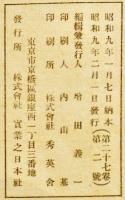 昭和九年一月七日納本(第二十七卷)
昭和九年二月一日發行(第二號)
編輯兼發行人 增田義一
印刷人 內山基
印刷所 株式會社 秀英舍
東京市京橋區銀座西一丁目三番地
發行所 株式會社 實業之日本社